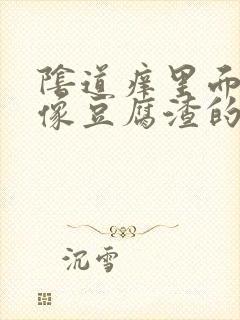 陰道痒里而
像豆腐渣的
沉雪